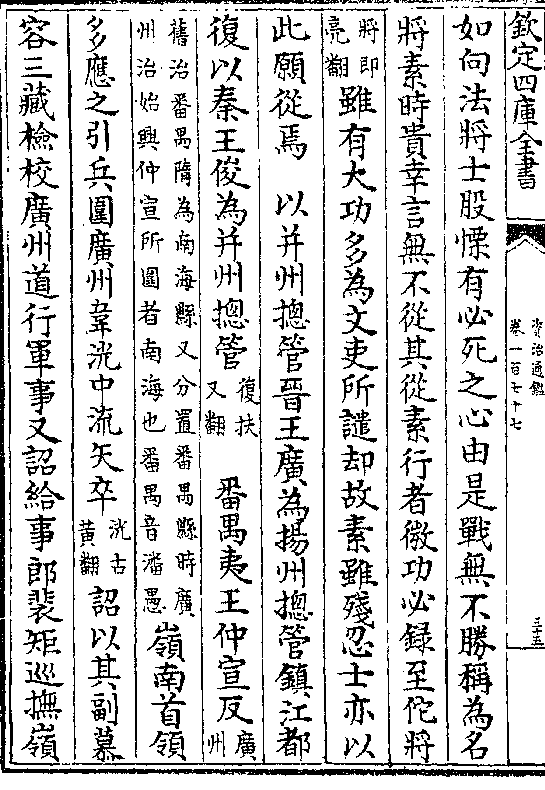 欽定四庫全書
資治通鑑
卷一百七十七
三十五
如向法將士股慄有必死之心由是戰無不勝稱為名
將素時貴幸言無不從其從素行者微功必録至佗將
將即亮翻雖有大功多為文吏所譴却故素雖殘忍士亦以
此願從焉　以并州摠管晉王廣為揚州摠管鎮江都
復以秦王俊為并州摠管復扶又翻　番禺夷王仲宣反廣州
舊治番禺隋為南海縣又分置番禺縣時廣州治始興仲宣所圍者南海也番禺音潘愚嶺南首領
多應之引兵圍廣州韋洸中流矢卒洸古黄翻詔以其副慕
容三藏檢校廣州道行軍事又詔給事郎裴矩巡撫嶺